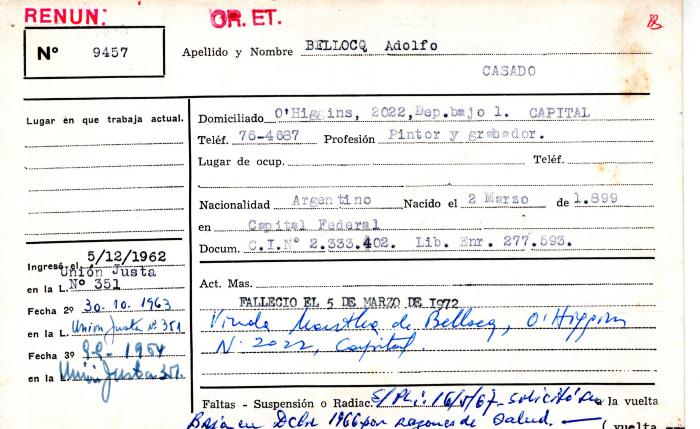 RENUN: OR. ET.
Nº 9457
Apellido y Nombre BELLOCQ Adolfo
CASADO
Lugar en que trabaja actual.
Domiciliado O'Higgins, 2022, Dep.bajo 1. CAPITAL
Teléf. 76-4687 Profesión Pintor y grabador.
Lugar de ocup. Teléf.
Nacionalidad Argentino Nacido el 2 Marzo de 1.899
en Capital Federal
Docum. C.I.Nº 2.333.402. Lib. Enr. 277.593.
Ingresó el 5/12/1962
Unión Justa
en la L. Nº 351
Fecha 2º 30.10.1963
en la L. Union Justa Nº 351
Fecha 3º 1964
en la L. Unión Justa 351.
Act. Mas.
FALLECIO EL 5 DE MARZO DE 1972
Viuda Martha de Bellocq, O'Higgins
Nº 2022, Capital.
Faltas - Suspensión o Radiac. S/Pl: 16/5/67 - solicitó su la vuelta
Baja en Dcbre 1966 por razones de salud. — ( vuelta